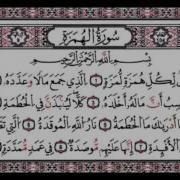 سُورَةُ الهُمَزَةِ
بِسْمِ اللَّهِ الرَّحْمَٰنِ الرَّحِيمِ
لِّكُلِّ هُمَزَةٍ لُّمَزَةٍ ۝١ الَّذِي جَمَعَ مَالًا وَعَدَّدَهُ ۝٢
أَنَّ مَالَهُ أَخْلَدَهُ ۝٣ كَلَّا لَيُنبَذَنَّ فِي الْحُطَمَةِ ۝٤
أَدْرَاكَ مَا الْحُطَمَةُ ۝٥ نَارُ اللَّهِ الْمُوقَدَةُ ۝٦ الَّتِي
الْأَفْئِدَةِ ۝٧ إِنَّهَا عَلَيْهِم مُّؤْصَدَةٌ ۝٨ فِي عَمَدٍ مُّمَدَّدَةٍ